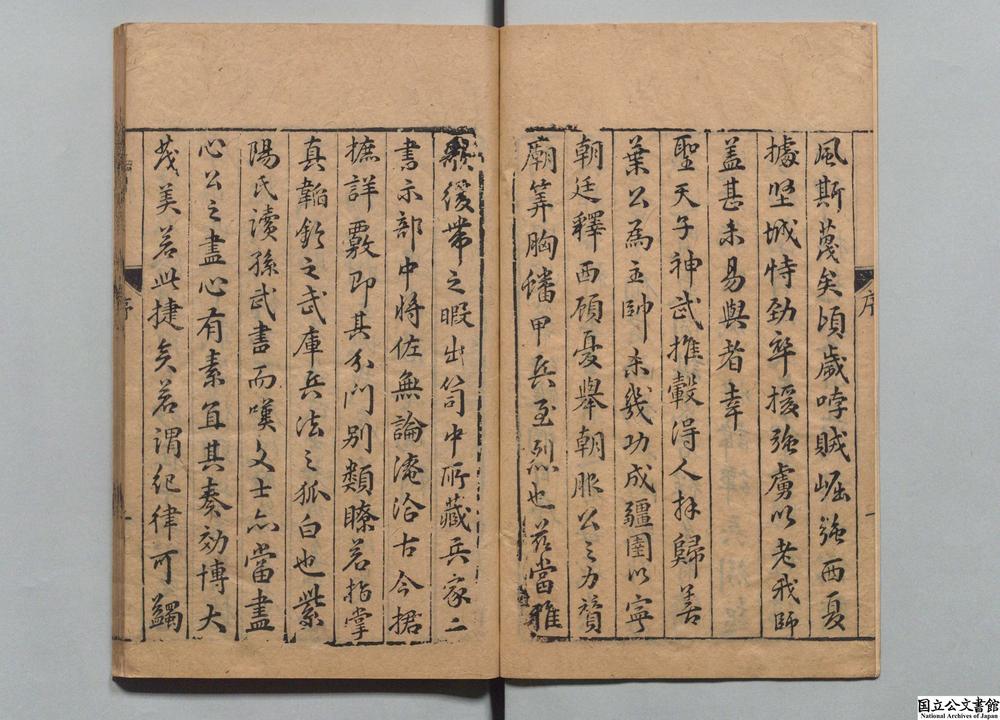 風斯蔑矣頃歲哱賊崛強西夏
據堅城恃勁卒援強虜以老我師
盖甚未易與者幸
聖天子神武推轂得人拜歸善
葉公為主帥未幾功成疆圉以寧
朝廷釋西顧憂舉朝服公之力贊
廟筭胸蟠甲兵至烈也茲當雅
歌緩帶之暇出笥中所藏兵家二
書示部中將佐無論淹洽古今捃
摭詳覈即其分門別類瞭若指掌
真韜鈐之武庫兵法之狐白也紫
陽氏讀孫武書而嘆文士亦當盡
心公之盡心有素宜其奏効博大
茂美若此捷矣若謂紀律可蠲
序
一
序
国立公文書館
National Archives of Japan